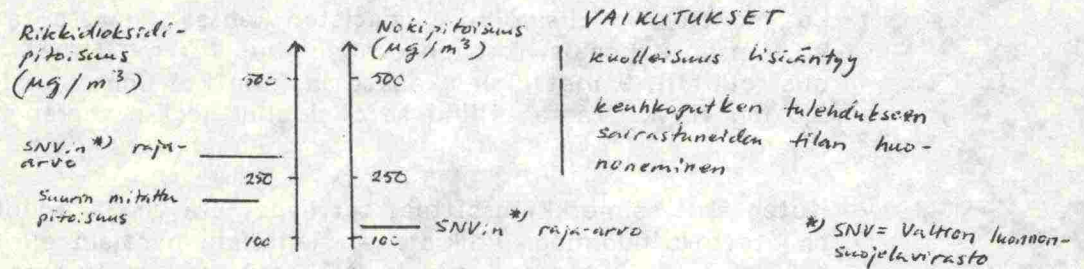 Rikkidioksidi-
pitoisuus
(µg/m³)
500
SNV:n*) raja-
arvo
250
Suurin mitattu
pitoisuus
100
Nokipitoisuus
(µg/m³)
500
250
SNV:n*) raja-arvo
100
VAIKUTUKSET
kuolleisuus lisääntyy
keuhkoputken tulehdukseen
sairastuneiden tilan huo-
noneminen
*) SNV = Valtion luonnon-
suojeluvirasto